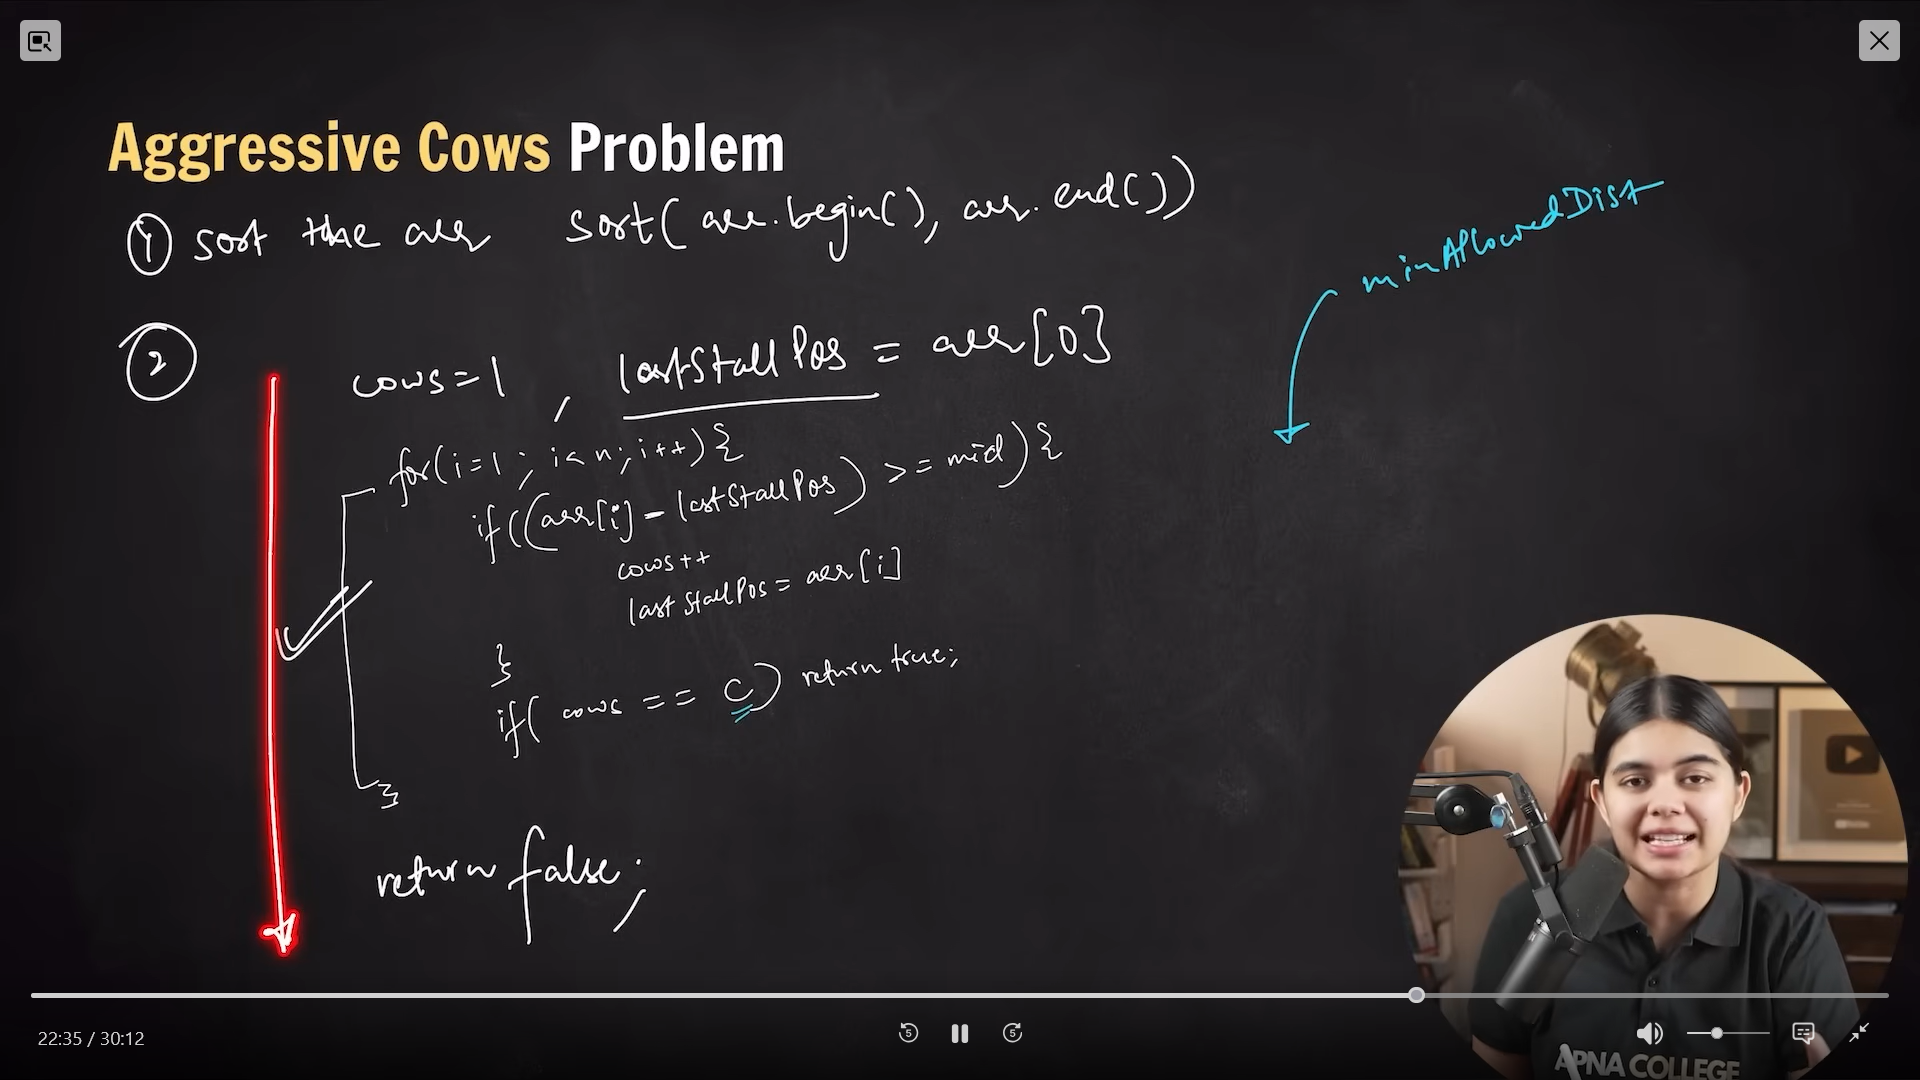 Aggressive Cows Problem
① sort the arr sort(arr.begin(), arr.end())
minAllowedDist
②
cows=1 , lastStallPos = arr[0]
for(i=1; i<n; i++){
if((arr[i] - lastStallPos) >= mid){
cows++
lastStallPos = arr[i]
}
if( cows == C) return true;
}
return false;
22:35 / 30:12
5
5
APNA COLLEGE